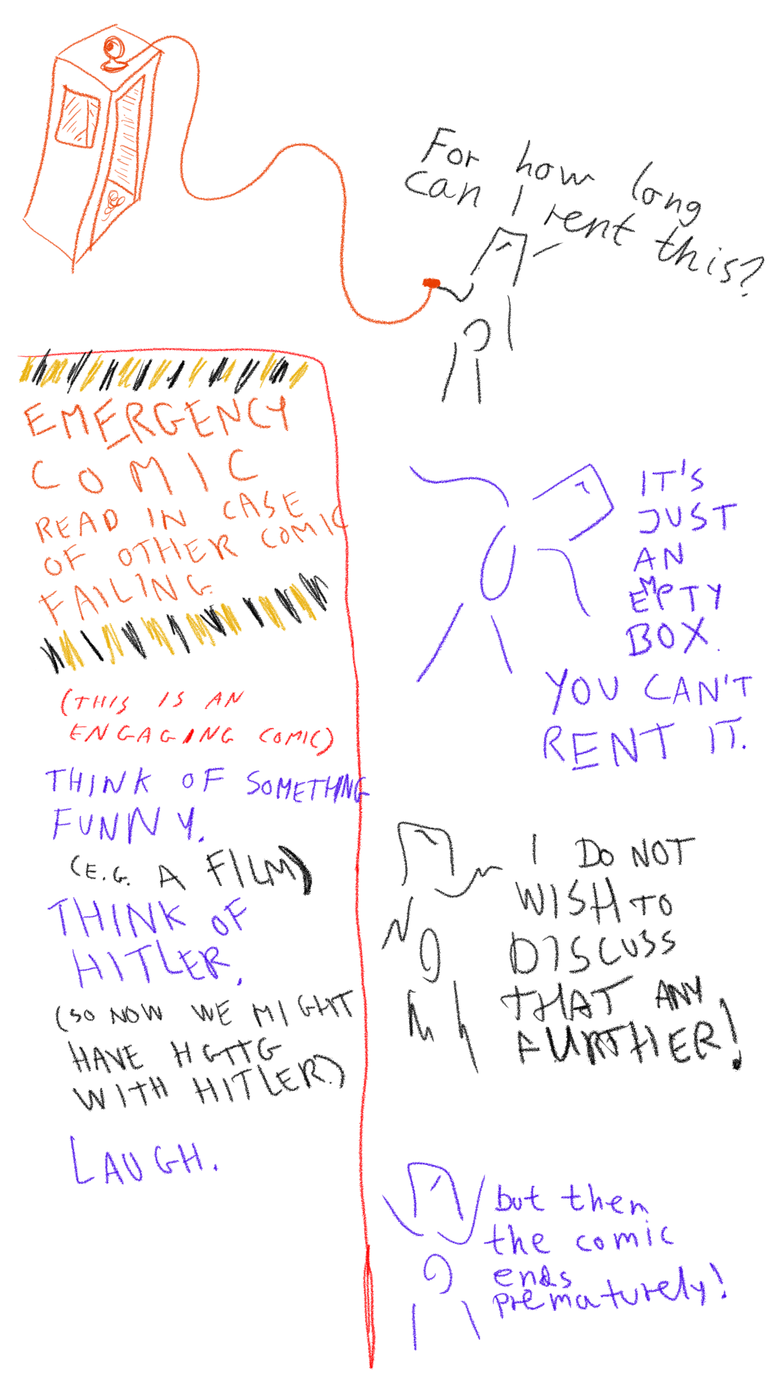 For how long
can I rent this?
EMERGENCY
COMIC
READ IN CASE
OF OTHER COMIC
FAILING.
(THIS IS AN
ENGAGING COMIC)
THINK OF SOMETHING
FUNNY.
(E.G. A FILM)
THINK OF
HITLER.
(SO NOW WE MIGHT
HAVE HGTTG
WITH HITLER.)
LAUGH.
IT'S
JUST
AN
EMPTY
BOX.
YOU CAN'T
RENT IT.
I DO NOT
WISH TO
DISCUSS
THAT ANY
FURTHER!
but then
the comic
ends
prematurely!